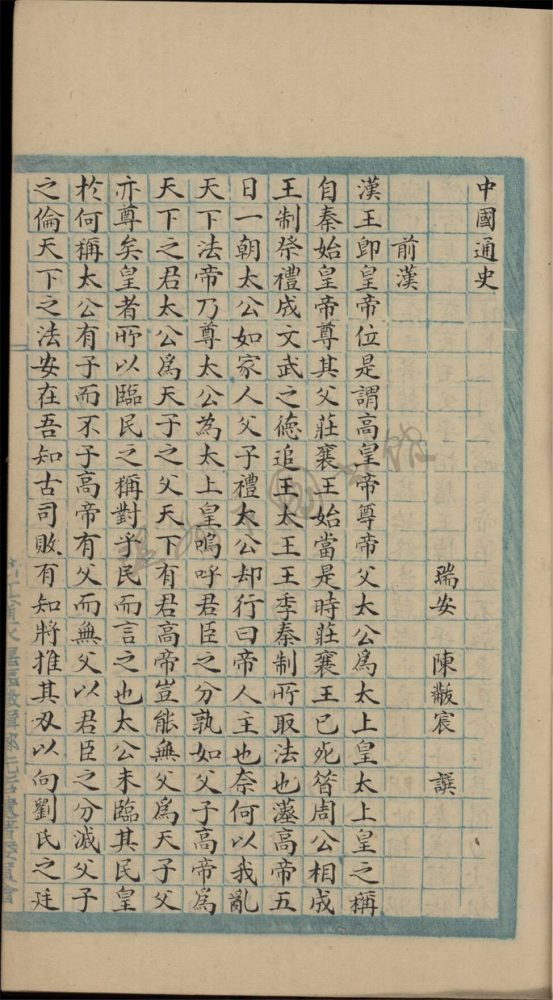 中國通史
瑞安 陳黻宸 譔
前漢
漢王卽皇帝位是謂高皇帝尊帝父太公爲太上皇太上皇之稱
自秦始皇帝尊其父莊襄王始當是時莊襄王已死昝周公相成
王制祭禮成文武之德追王太王王季秦制所取法也蓫高帝五
日一朝太公如家人父子禮太公却行曰帝人主也奈何以我亂
天下法帝乃尊太公為太上皇嗚呼君臣之分孰如父子高帝爲
天下之君太公爲天子之父天下有君高帝豈能無父爲天子父
亦尊矣皇者所以臨民之稱對乎民而言之也太公未臨其民皇
於何稱太公有子而不子高帝有父而無父以君臣之分滅父子
之倫天下之法安在吾知古司敗有知將推其刄以向劉氏之廷